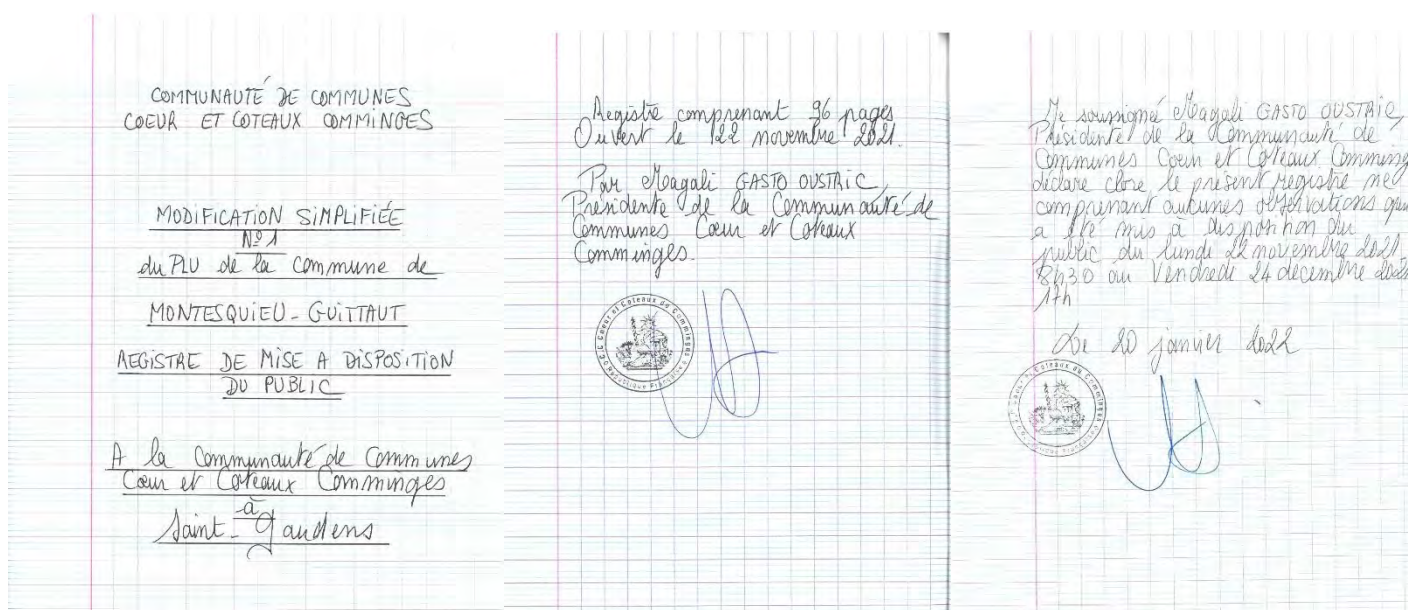 COMMUNAUTÉ DE COMMUNES
COEUR ET COTEAUX COMMINGES
MODIFICATION SIMPLIFIÉE
N°1
du PLU de la Commune de
MONTESQUIEU-GUITTAUT
REGISTRE DE MISE A DISPOSITION
DU PUBLIC
A la Communauté de Communes
Cœur et Coteaux Comminges
à
Saint-Gaudens
Registre comprenant 96 pages
Ouvert le 22 novembre 2021.
Par Magali GASTO OUSTRIC,
Présidente de la Communauté de
Communes Cœur et Coteaux
Comminges.
Coeur et Coteaux de Comminges
République Française
Je soussigné Magali GASTO OUSTRIC,
Présidente de la Communauté de
Communes Coeur et Coteaux Comming
déclare clore le présent registre ne
comprenant aucunes observations qui
a été mis a disposition du
public du lundi 22 novembre 2021
8h30 au Vendredi 24 décembre 2021
17h
Le 20 janvier 2022
Coteaux de Comminges